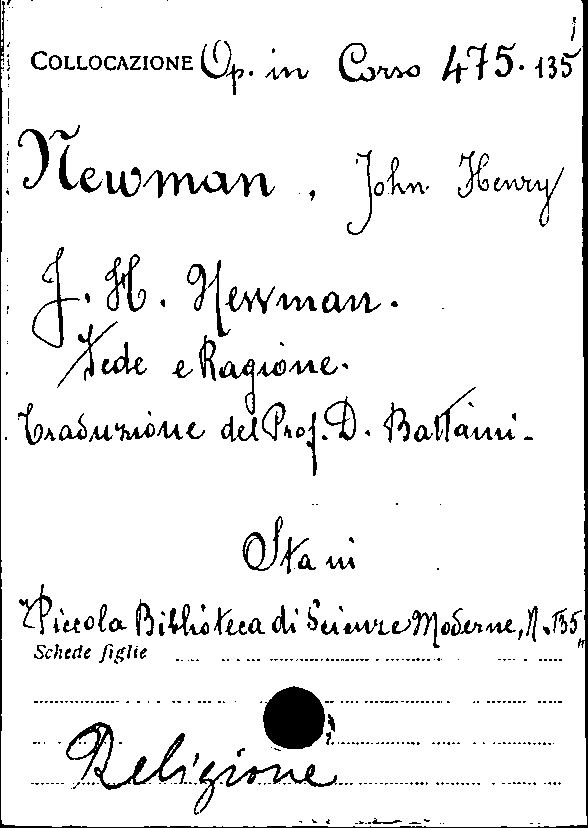 COLLOCAZIONE Op. in Corso 475.135
Newman, John Henry
J. H. Newman.
Fede e Ragione.
Traduzione del Prof. D. Battaini -
Sta in
"Piccola Biblioteca di Scienze Moderne, N. 135"
Schede figlie
Religione